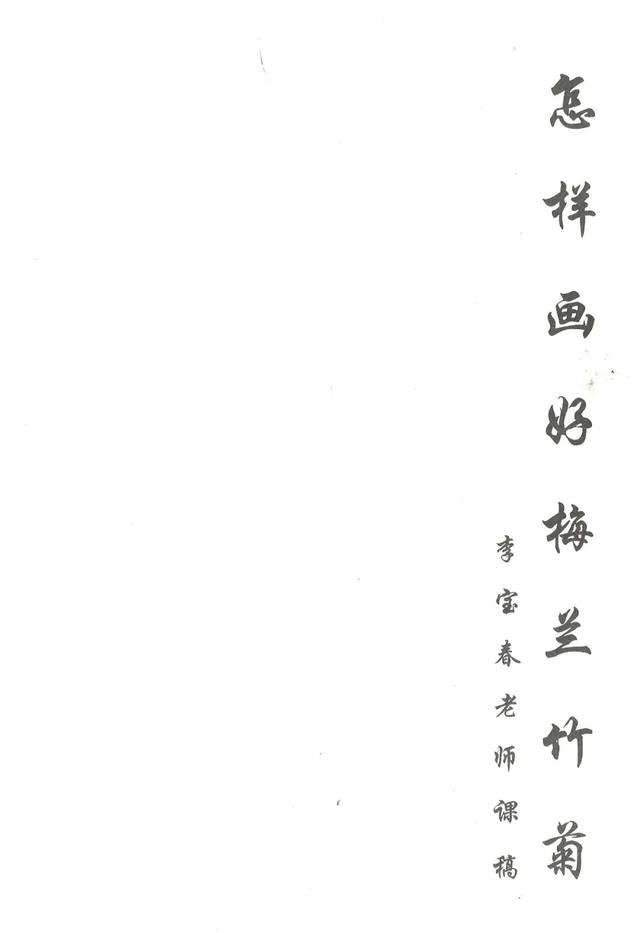 怎样画好梅兰竹菊
李宝春老师课稿